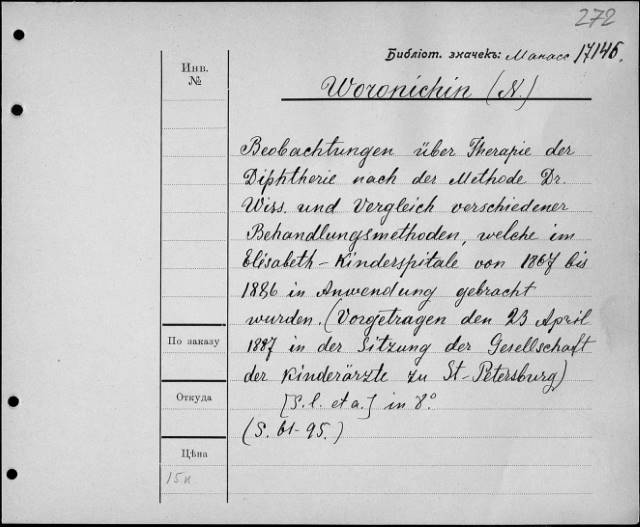 272
Библіот. значекъ: Манасс 17146.
Инв.
№
Woronichin (N.)
Beobachtungen über Therapie der
Diphtherie nach der Methode Dr.
Wiss. und Vergleich verschiedener
Behandlungsmethoden, welche im
Elisabeth-Kinderspitale von 1867 bis
1886 in Anwendung gebracht
wurden. (Vorgetragen den 23 April
1887 in der Sitzung der Gesellschaft
der Kinderärzte zu St-Petersburg)
[S. l. et a.] in 8°.
(S. 61-95.)
По заказу
Откуда
Цѣна
15к